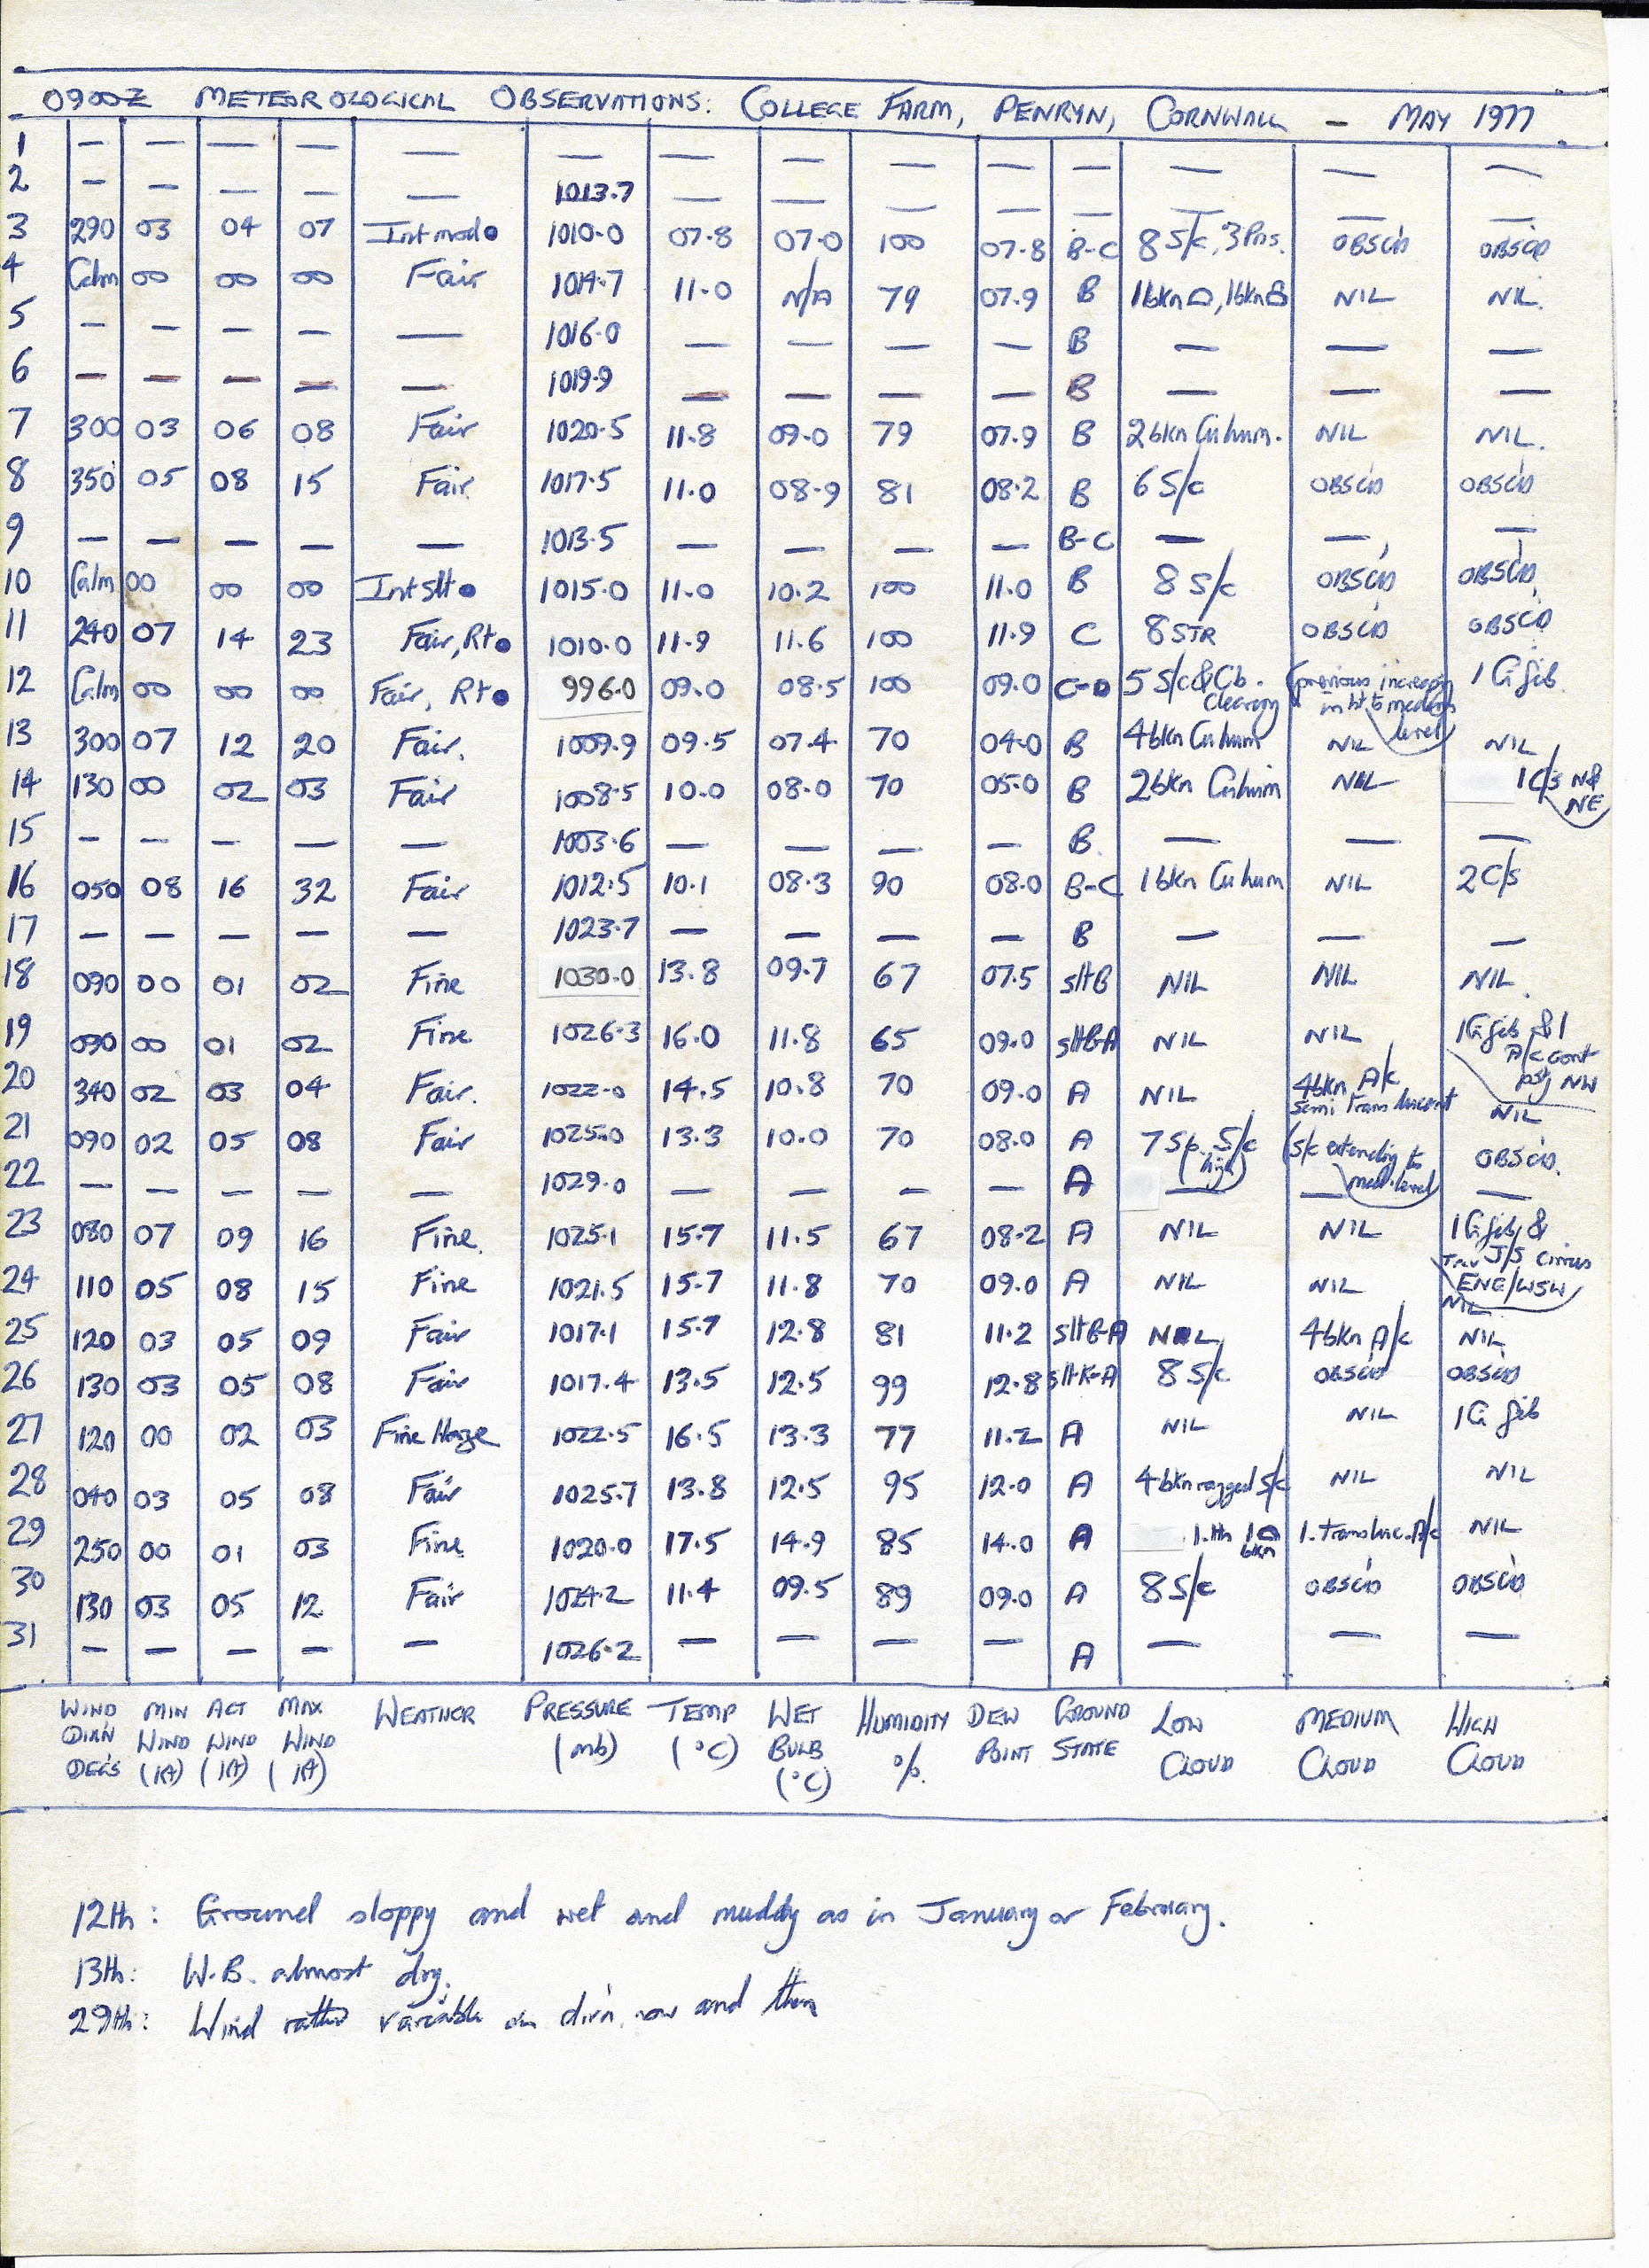 0900Z METEOROLOGICAL OBSERVATIONS: COLLEGE FARM, PENRYN, CORNWALL - MAY 1977
1 — — — — — — — — — — — — — —
2 — — — — — 1013.7 — — — — — — — —
3 290 03 04 07 Int mod ● 1010.0 07.8 07.0 100 07.8 B-C 8 S/c, 3 Pns. OBSC'D OBSC'D
4 Calm 00 00 00 Fair 1014.7 11.0 N/A 79 07.9 B 1bkn, 1bkn NIL NIL.
5 — — — — — 1016.0 — — — — B — — —
6 — — — — — 1019.9 — — — — B — — —
7 300 03 06 08 Fair 1020.5 11.8 09.0 79 07.9 B 2bkn Cu hum. NIL NIL.
8 350 05 08 15 Fair 1017.5 11.0 08.9 81 08.2 B 6 S/c OBSC'D OBSC'D
9 — — — — — 1013.5 — — — — B-C — — —
10 Calm 00 00 00 Int slt ● 1015.0 11.0 10.2 100 11.0 B 8 S/c OBSC'D OBSC'D
11 240 07 14 23 Fair, Rt ● 1010.0 11.9 11.6 100 11.9 C 8 STR OBSC'D OBSC'D
12 Calm 00 00 00 Fair, Rt ● 996.0 09.0 08.5 100 09.0 C-D 5 S/c & Cb. Clearing (previous increasing in ht to medium level) 1 Ci fib.
13 300 07 12 20 Fair. 1009.9 09.5 07.4 70 04.0 B 4bkn Cu hum NIL NIL
14 130 00 02 03 Fair 1008.5 10.0 08.0 70 05.0 B 2bkn Cu hum NIL 1 C/s N & NE
15 — — — — — 1003.6 — — — — B. — — —
16 050 08 16 32 Fair 1012.5 10.1 08.3 90 08.0 B-C 1bkn Cu hum NIL 2 C/s
17 — — — — — 1023.7 — — — — B — — —
18 090 00 01 02 Fine 1030.0 13.8 09.7 67 07.5 slt B NIL NIL NIL.
19 090 00 01 02 Fine 1026.3 16.0 11.8 65 09.0 slt B-A NIL NIL 1 Ci fib & 1 A/c cont psg NW
20 340 02 03 04 Fair. 1022.0 14.5 10.8 70 09.0 A NIL 4bkn A/c Semi Translucent NIL
21 090 02 05 08 Fair 1025.0 13.3 10.0 70 08.0 A 7 Sp. S/c (high) (S/c extending to med. level) OBSC'D.
22 — — — — — 1029.0 — — — — A — — —
23 080 07 09 16 Fine. 1025.1 15.7 11.5 67 08.2 A NIL NIL 1 Ci fib & J/S Cirrus ENE/WSW
24 110 05 08 15 Fine 1021.5 15.7 11.8 70 09.0 A NIL NIL NIL
25 120 03 05 09 Fair 1017.1 15.7 12.8 81 11.2 slt B-A NIL 4bkn A/c NIL
26 130 03 05 08 Fair 1017.4 13.5 12.5 99 12.8 A 8 S/c OBSC'D OBSC'D
27 120 00 02 03 Fine Haze 1022.5 16.5 13.3 77 11.2 A NIL NIL 1 Ci fib
28 040 03 05 08 Fair 1025.7 13.8 12.5 95 12.0 A 4bkn ragged S/c NIL NIL
29 250 00 01 03 Fine 1020.0 17.5 14.9 85 14.0 A 1. th 1 bkn 1. transluc. A/c NIL
30 130 03 05 12 Fair 1024.2 11.4 09.5 89 09.0 A 8 S/c OBSC'D OBSC'D
31 — — — — — 1026.2 — — — — A — — —
WIND DIR'N DEG'S MIN WIND ACT WIND MAX WIND WEATHER PRESSURE (mb) TEMP (°C) WET BULB (°C) HUMIDITY %. DEW POINT GROUND STATE LOW CLOUD MEDIUM CLOUD HIGH CLOUD
12th: Ground sloppy and wet and muddy as in January or February.
13th: W.B. almost dry.
29th: Wind rather variable in dir'n. now and then